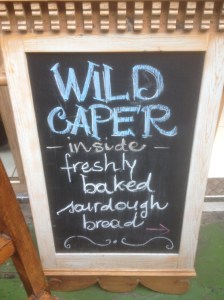 WILD
CAPER
- inside -
freshly
baked
sourdough
bread →